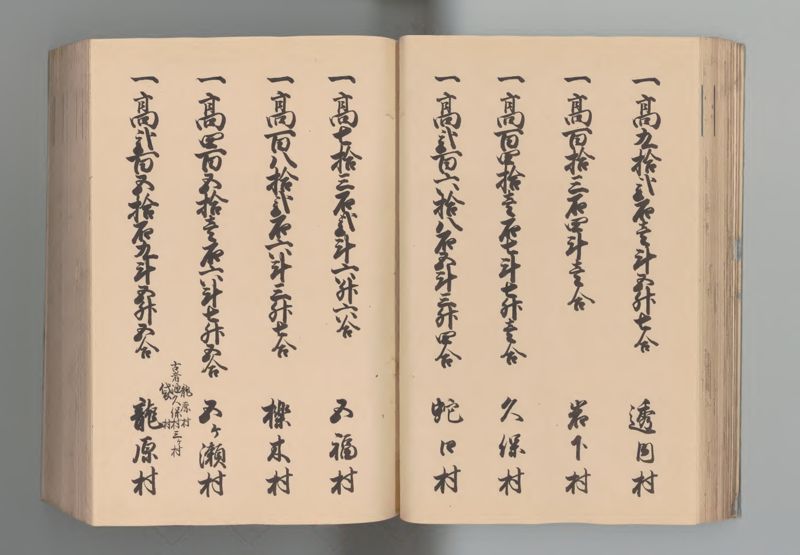 一高九拾弐石壱斗五升七合 透岡村
一高百拾三石四斗壱合 岩下村
一高百四拾壱石七斗七升壱合 久保村
一高弐百六拾八石五斗三升四合 蛇口村
一高七拾三石弐斗六升六合 五福村
一高百八拾弐石六斗三升七合 櫟木村
一高四百五拾壱石六斗七升五合 五ヶ瀬村
一高弐百五拾石九斗五升五合 龍原村
龍原村
久保村三ヶ村
村